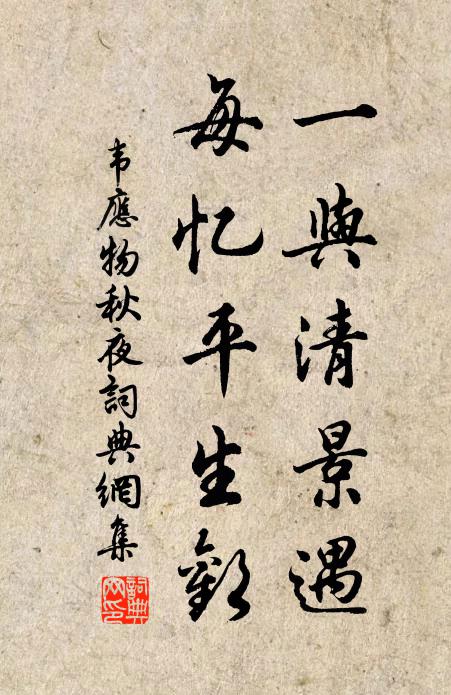 一與清景遇
每忆平生歡
韦應物秋夜詞典網集
詞典網印